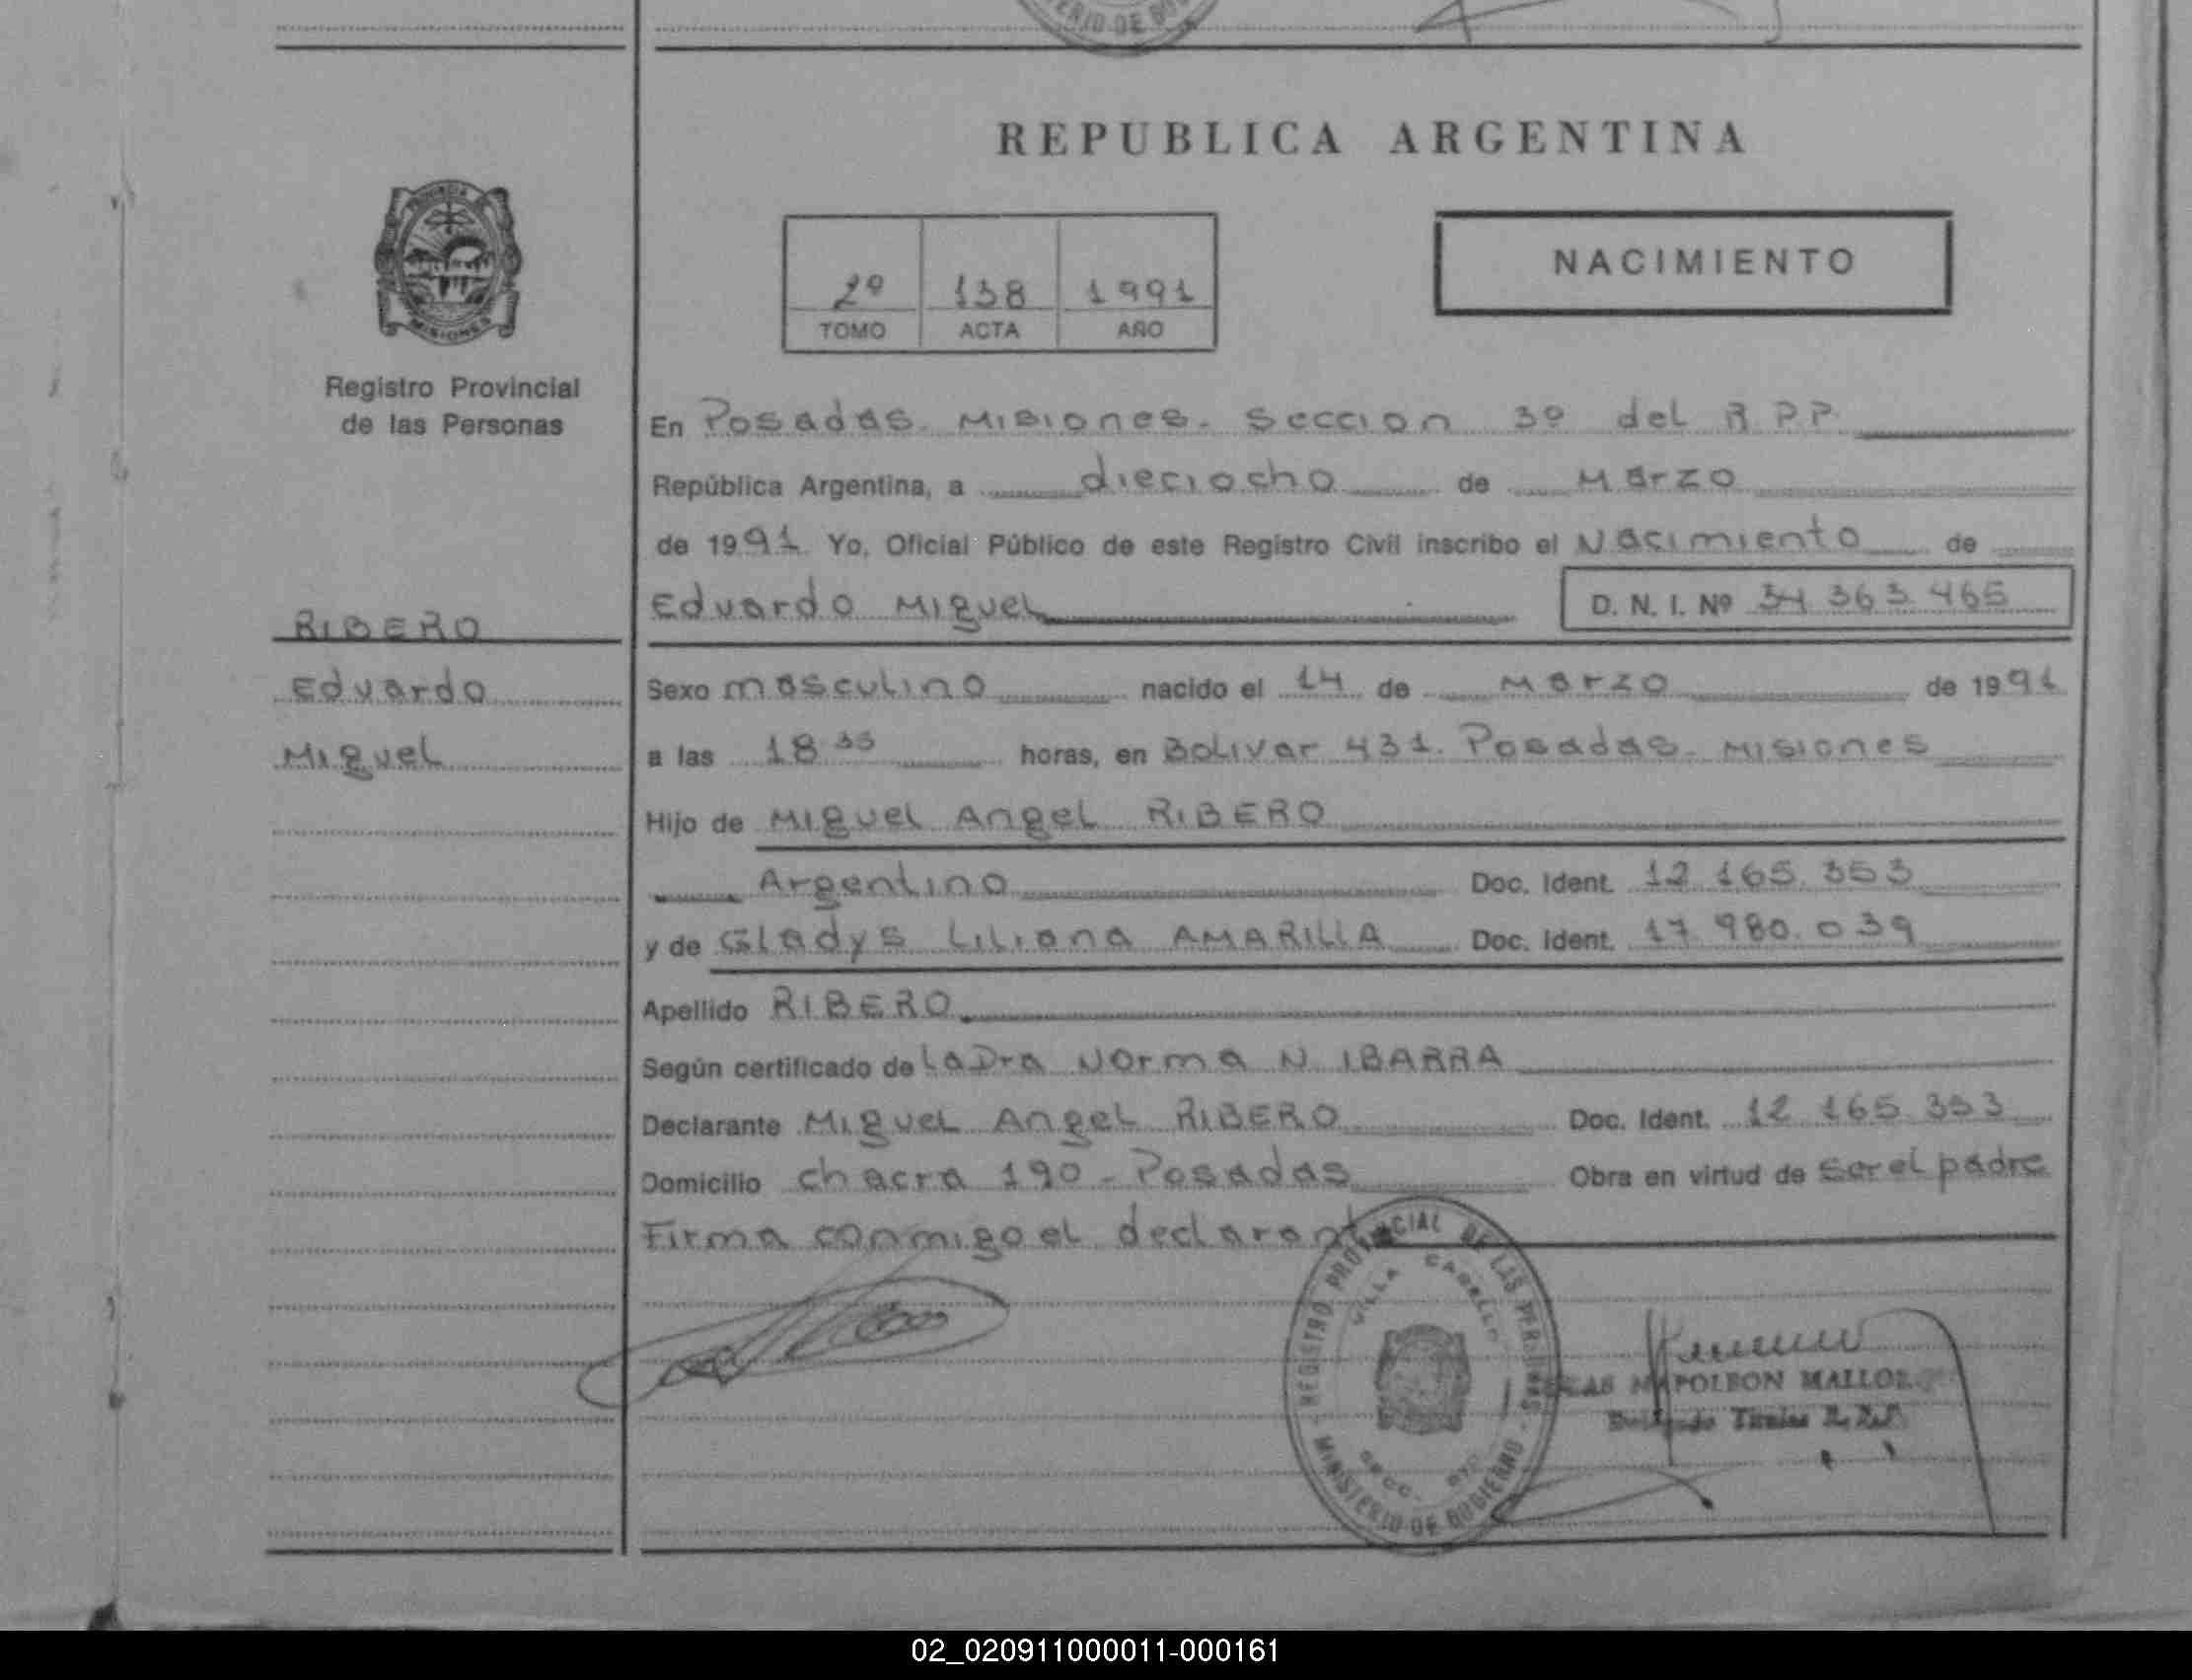 REPUBLICA ARGENTINA
NACIMIENTO
2º 138 1991
TOMO ACTA AÑO
PROVINCIA
MISIONES
Registro Provincial
de las Personas
RIBERO
Eduardo
Miguel
En Posadas. Misiones. Seccion 3º del R.P.P.
República Argentina, a dieciocho de Marzo
de 1991 Yo, Oficial Público de este Registro Civil inscribo el Nacimiento de
Eduardo Miguel D. N. I. Nº 34 363 465
Sexo masculino nacido el 14 de Marzo de 1991
a las 18 35 horas, en Bolivar 431. Posadas. Misiones
Hijo de Miguel Angel RIBERO
Argentino Doc. Ident. 12 165 353
y de Gladys Liliana AMARILLA Doc. Ident. 17 980.039
Apellido RIBERO
Según certificado de La Dra Norma N. IBARRA
Declarante Miguel Angel RIBERO Doc. Ident. 12 165 353
Domicilio chacra 190 - Posadas Obra en virtud de ser el padre
Firma conmigo el declarante
REGISTRO PROVINCIAL DE LAS PERSONAS
VILLA CABELLO
MINISTERIO DE GOBIERNO
NAPOLEON
02_020911000011-000161